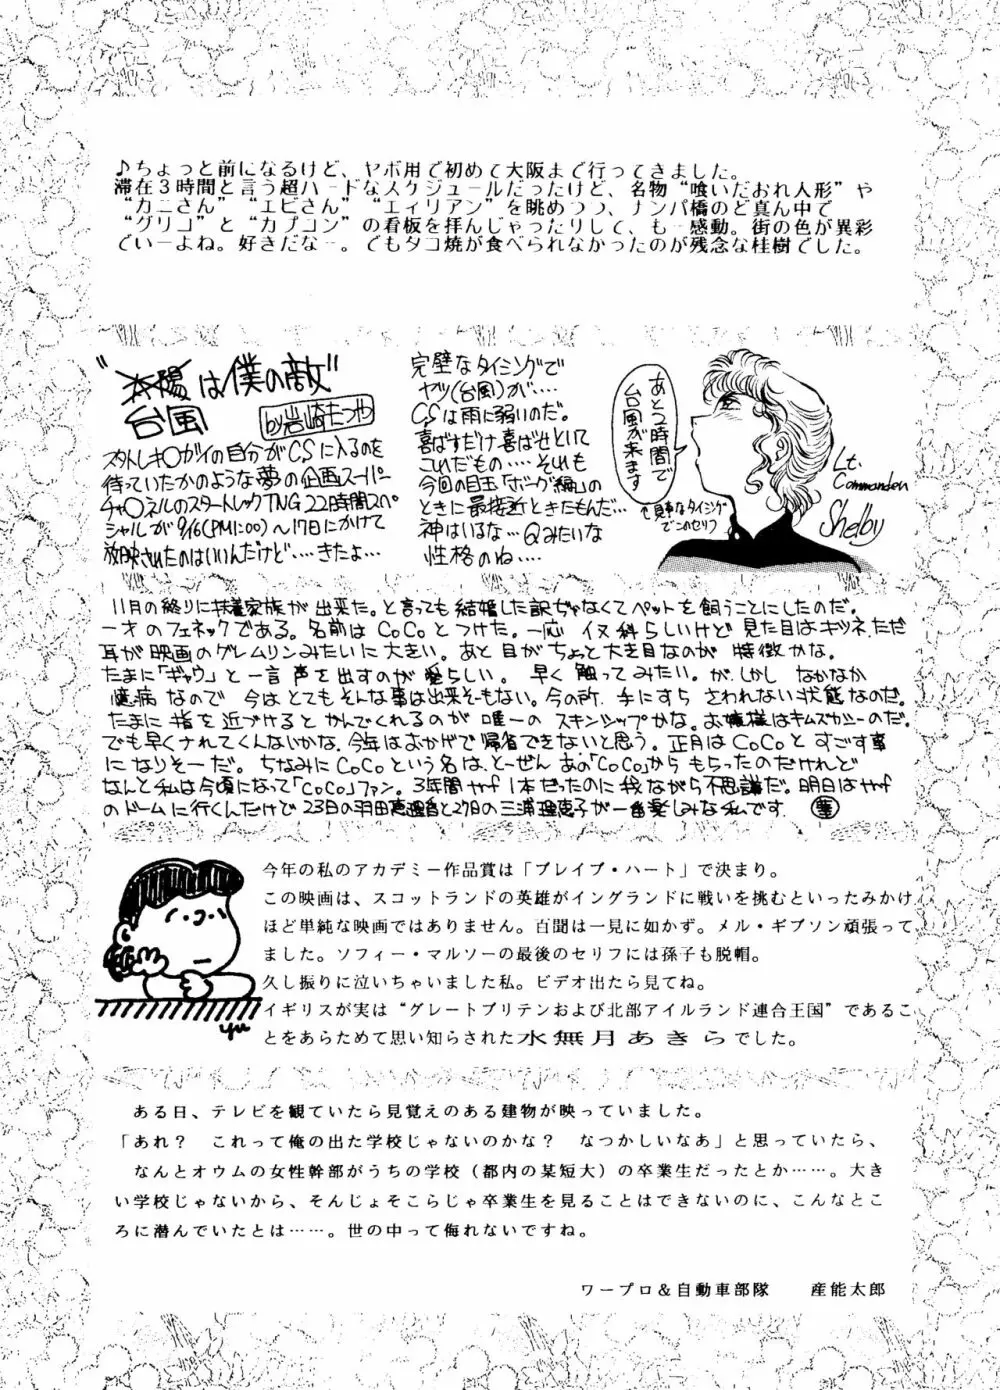 ♪ちょっと前になるけど、ヤボ用で初めて大阪まで行ってきました。
滞在３時間と言う超ハードなスケジュールだったけど、名物“喰いだおれ人形”や
“カニさん”“エビさん”“エイリアン”を眺めつつ、ナンパ橋のど真ん中で
“グリコ”と“カプコン”の看板を拝んじゃったりして、も一感動。街の色が異彩
でいーよね。好きだなー。でもタコ焼が食べられなかったのが残念な桂樹でした。
“太陽は僕の敵”
台風
by岩崎たつや
スタトレキ○ガイの自分がCSに入るのを
待っていたかのような夢の企画スーパー
チャ○ネルのスタートレックTNG 22時間スペ
シャルが9/16(PM1:00)～17日にかけて
放映されたのはいいんだけど‥‥きたよ…
完璧なタイミングで
ヤツ(台風)が‥‥
CSは雨に弱いのだ。
喜ばすだけ喜ばせといて
これだもの‥‥それも
今回の目玉「ボーグ編」の
ときに最接近ときたもんだ…
神はいるな…Qみたいな
性格のね‥‥
あと2時間で
台風が来ます
見事なタイミング
でこのセリフ
Lt.
Commander
Shelby
11月の終りに扶養家族が出来た。と言っても結婚した訳ぢゃなくてペットを飼うことにしたのだ。
一才のフェネックである。名前はCoCoとつけた。一応イヌ科らしいけど見た目はキツネ、ただ
耳が映画のグレムリンみたいに大きい。あと目がちょと大き目なのが特徴かな。
たまに「ギャウ」と一言声を出すのが愛らしい。早く触ってみたい。が、しかしなかなか
臆病なので今はとてもそんな事は出来そーもない。今の所、手にすらさわれない状態なのだ。
たまに指を近づけるとかんでくれるのが唯一のスキンシップかな。お嬢様はキムズカシーのだ。
でも早くナれてくんないかな、今年はおかげで帰省できないと思う。正月はCoCoとすごす事
になりそーだ。ちなみにCoCoという名は、とーぜんあの「CoCo」からもらったのだけれど
なんと私は今頃になって「CoCo」ファン。3年間ゃf1本だったのに我ながら不思議だ。明日はゃf
のドームに行くんだけど23日の羽田恵理香と27日の三浦理恵子が一番楽しみな私です。
今年の私のアカデミー作品賞は「ブレイブ・ハート」で決まり。
この映画は、スコットランドの英雄がイングランドに戦いを挑むといったみかけ
ほど単純な映画ではありません。百聞は一見に如かず。メル・ギブソン頑張って
ました。ソフィー・マルソーの最後のセリフには孫子も脱帽。
久し振りに泣いちゃいました私。ビデオ出たら見てね。
イギリスが実は“グレートブリテンおよび北部アイルランド連合王国”であるこ
とをあらためて思い知らされた水無月あきらでした。
yu
ある日、テレビを観ていたら見覚えのある建物が映っていました。
「あれ？　これって俺の出た学校じゃないのかな？　なつかしいなあ」と思っていたら、
なんとオウムの女性幹部がうちの学校（都内の某短大）の卒業生だったとか……。大き
い学校じゃないから、そんじょそこらじゃ卒業生を見ることはできないのに、こんなとこ
ろに潜んでいたとは……。世の中って侮れないですね。
ワープロ＆自動車部隊　　産能太郎